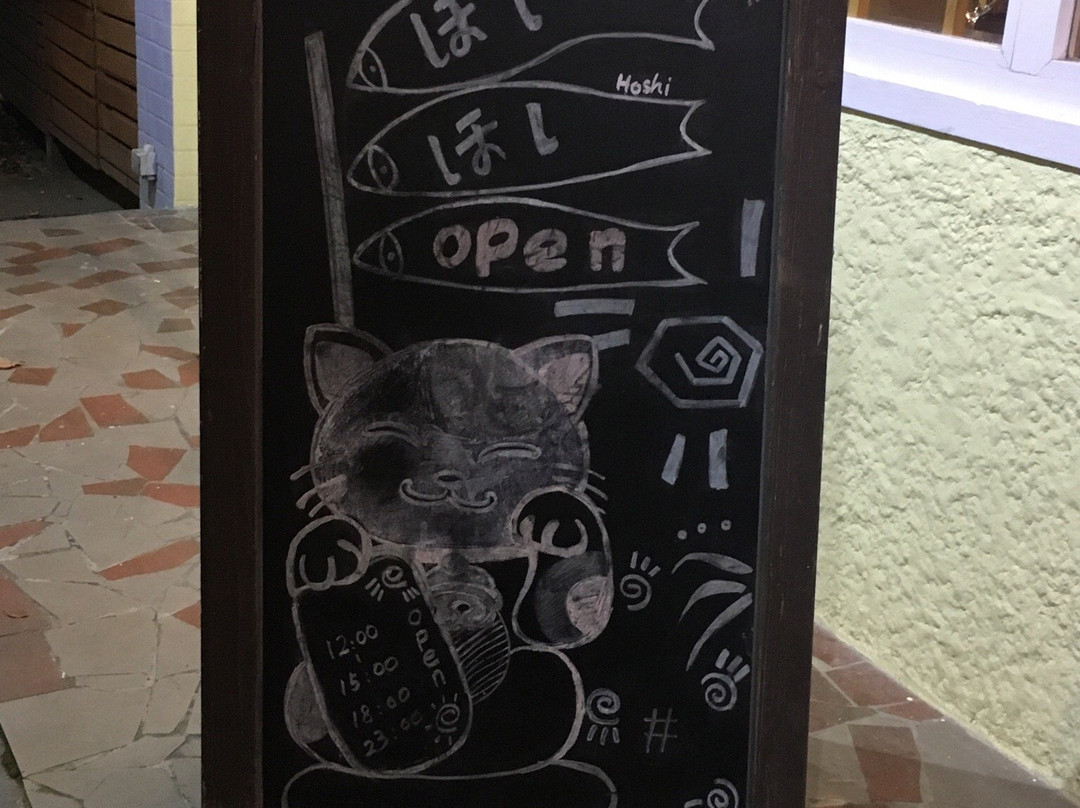 ほし
Hoshi
ほし
open
open
12:00
15:00
18:00
23:00
#